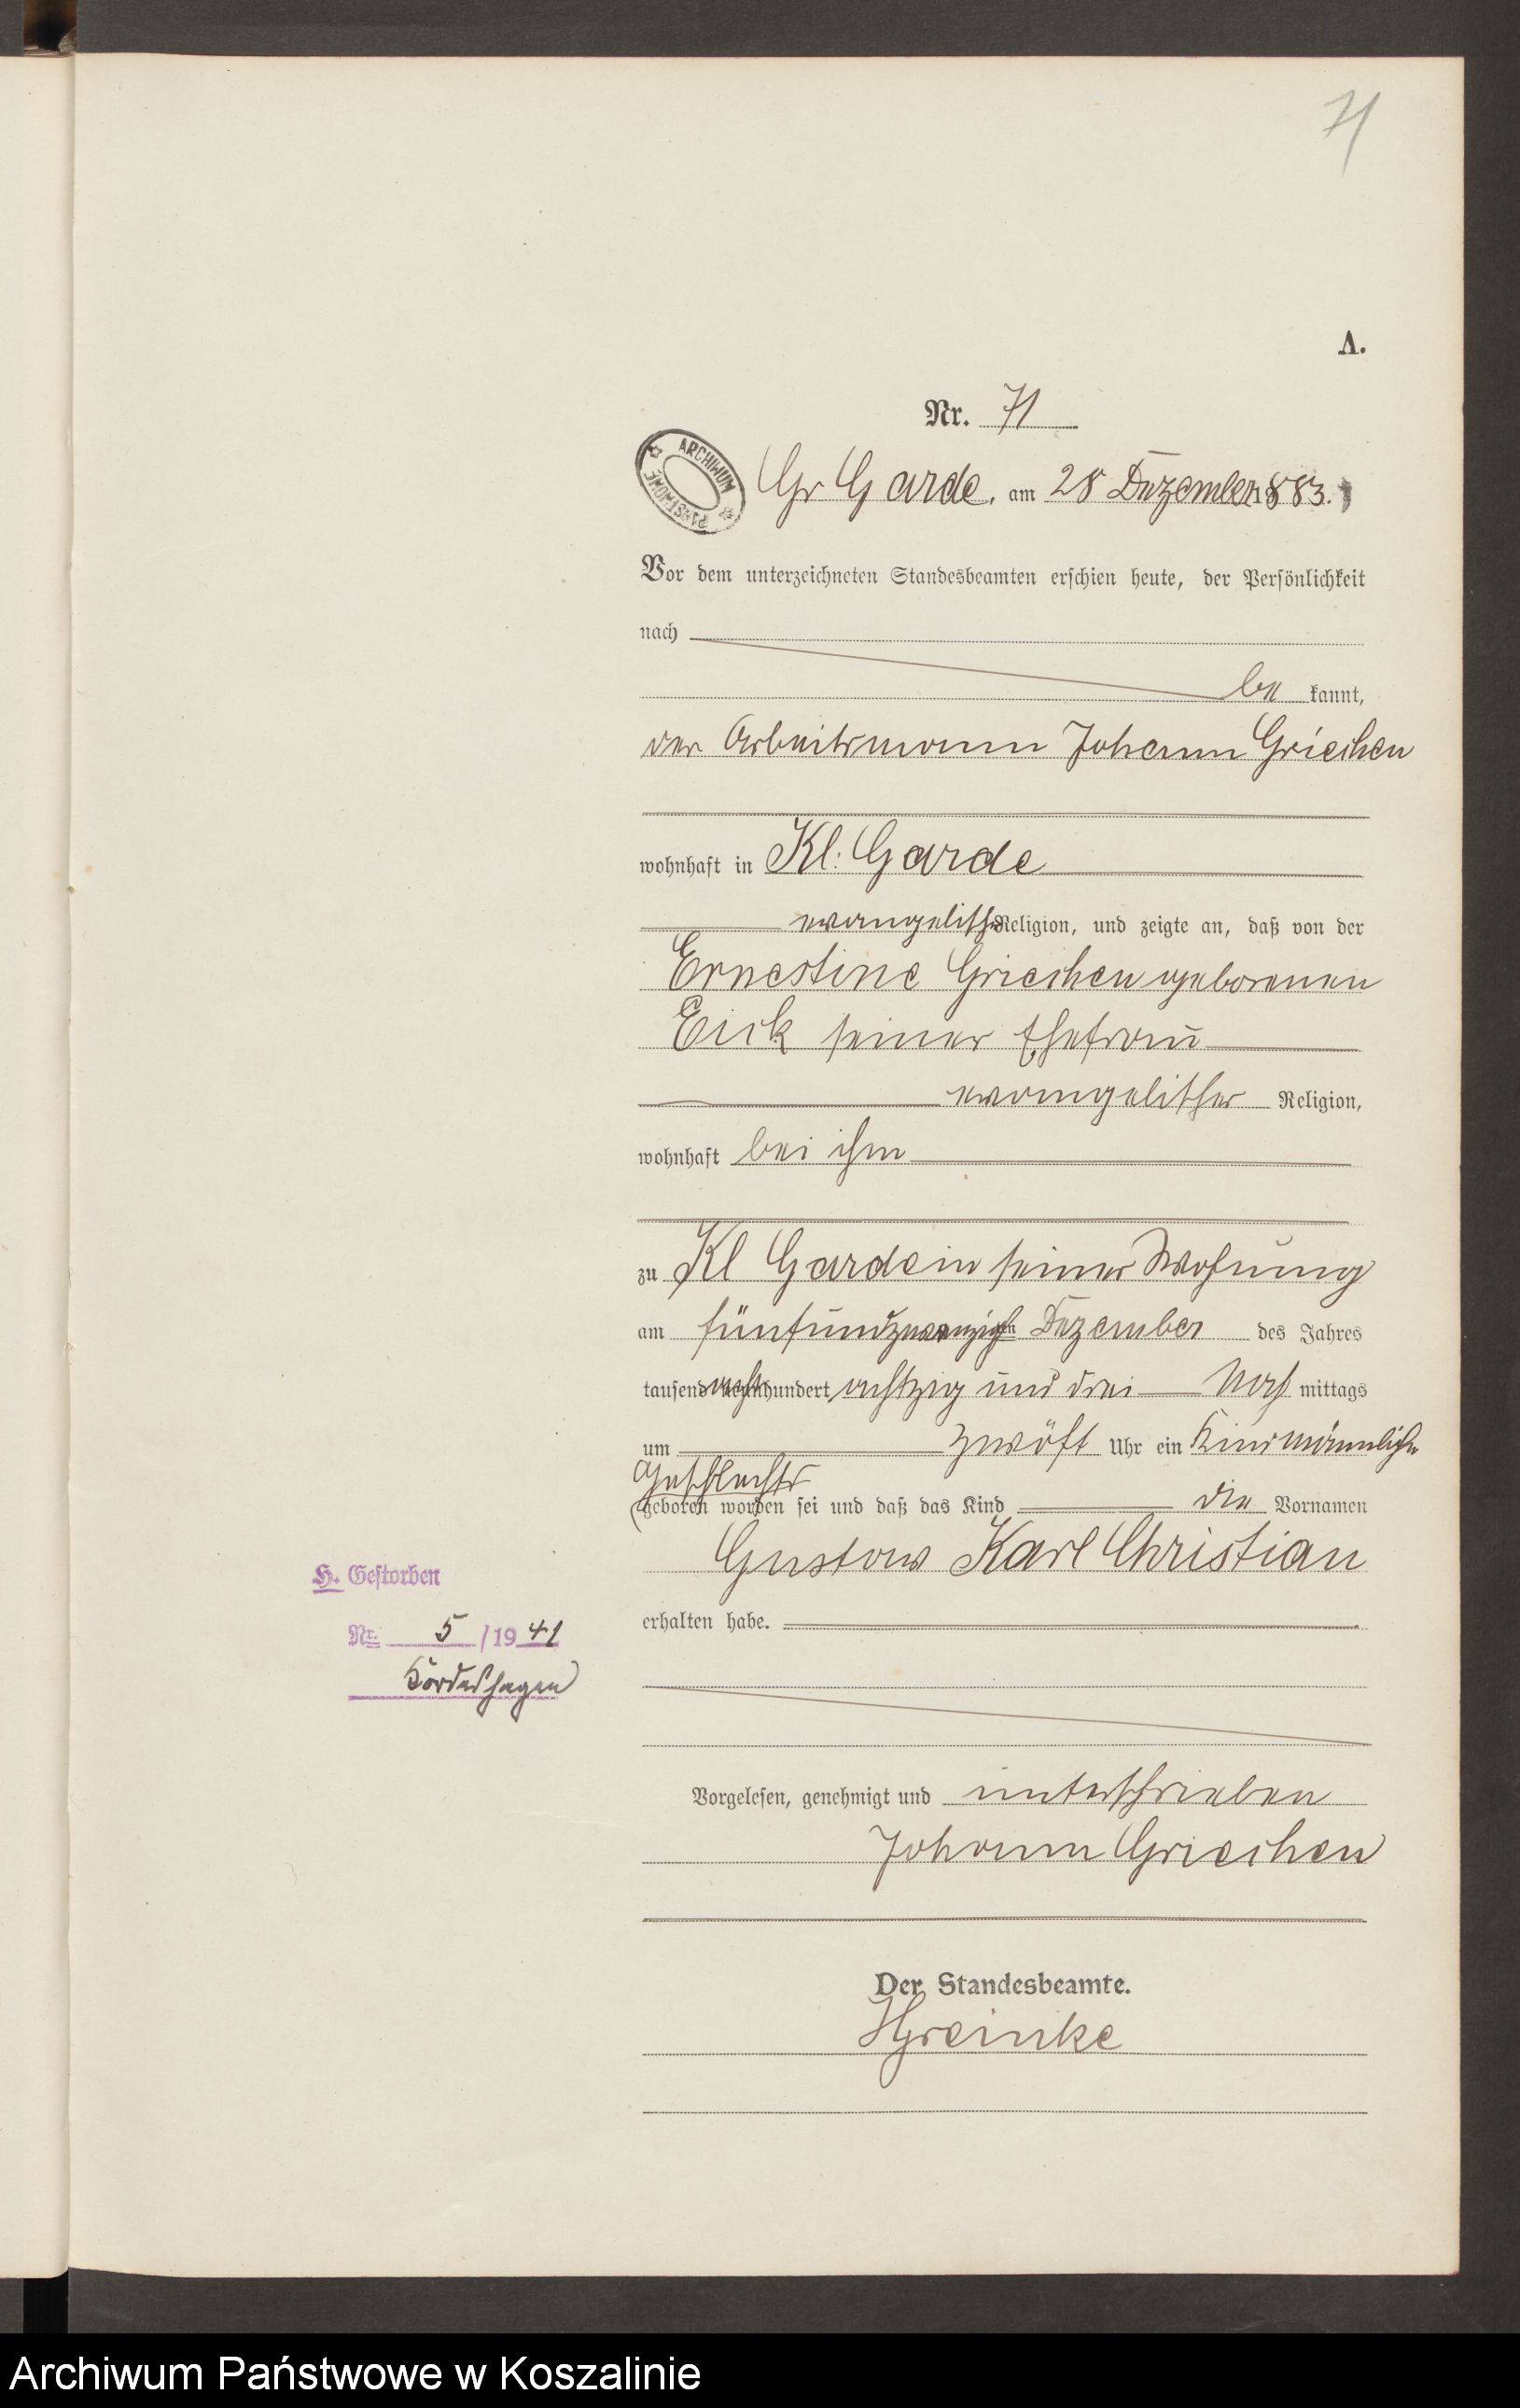 71
A.
Nr. 71
ARCHIWUM PAŃSTWOWE
Gr Garde, am 28 Dezember 1883.
Vor dem unterzeichneten Standesbeamten erschien heute, der Persönlichkeit
nach
be kannt,
der Arbeitsmann Johann Grieschen
wohnhaft in Kl: Garde
evangelischer Religion, und zeigte an, daß von der
Ernestine Grieschen geborenen
Eick seiner Ehefrau
evangelischer Religion,
wohnhaft bei ihm
zu Kl Garde in seiner Wohnung
am fünfundzwanzigsten Dezember des Jahres
tausend acht hundert achtzig und drei Nach mittags
um zwölf Uhr ein Kind männlichen
Geschlechts
geboren worden sei und daß das Kind die Vornamen
Gustav Karl Christian
H. Gestorben
erhalten habe.
Nr. 5 /1941
Vorgelesen, genehmigt und unterschrieben
Johann Grieschen
Der Standesbeamte.
HGreinke
Archiwum Państwowe w Koszalinie